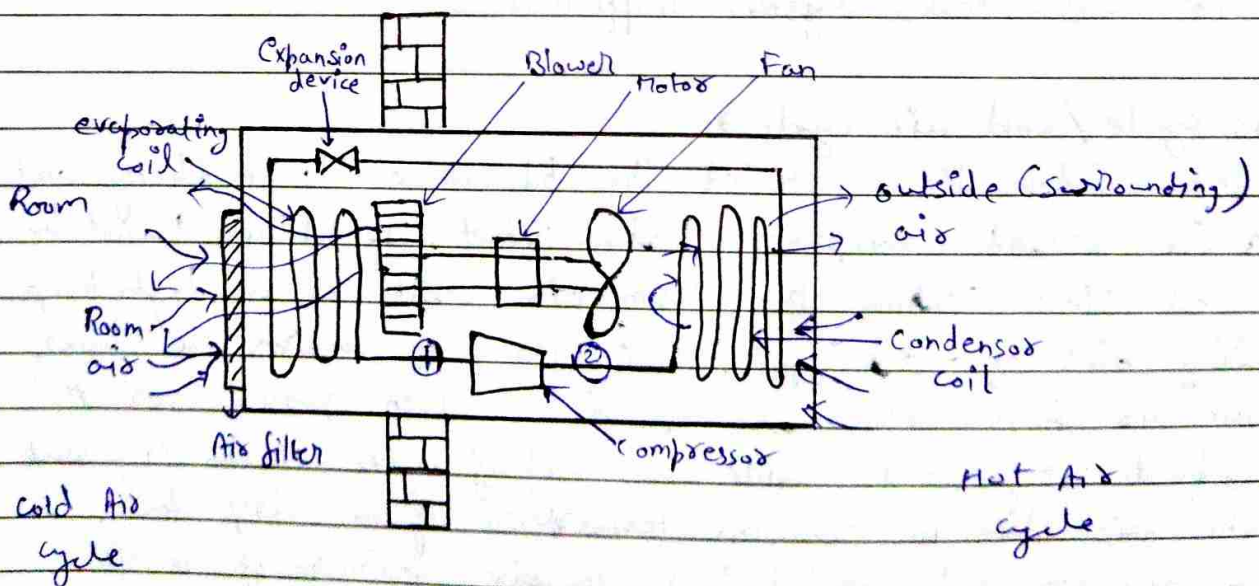 Expansion
device
Blower
Motor
Fan
evaporating
coil
Room
outside (surrounding)
air
Room
air
1
2
Condensor
coil
Air filter
Compressor
Cold Air
cycle
Hot Air
cycle